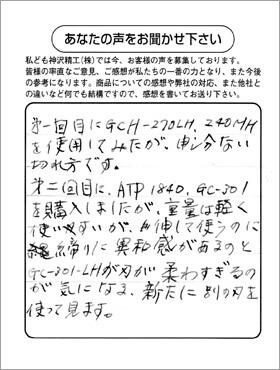 あなたの声をお聞かせ下さい
私ども神沢精工(株)では今、お客様の声を募集しております。
皆様の率直なご意見、ご感想が私たちの一番の力となり、また今後
の参考になります。商品についての感想や弊社の対応、また他社と
の違いなど何でも結構ですので、感想を書いてお送り下さい。
第一回目にGCH-270LH、240MH
を使用してみたが、申し分ない
切れ方です。
第二回目に、ATP 1840、GC-301
を購入しましたが、重量は軽く
使いやすいが、伸して使うのに
締りに異和感があるのと
GC-301-LHが刃が柔わすぎるの
が気になる、新たに別の刃を
使って見ます。